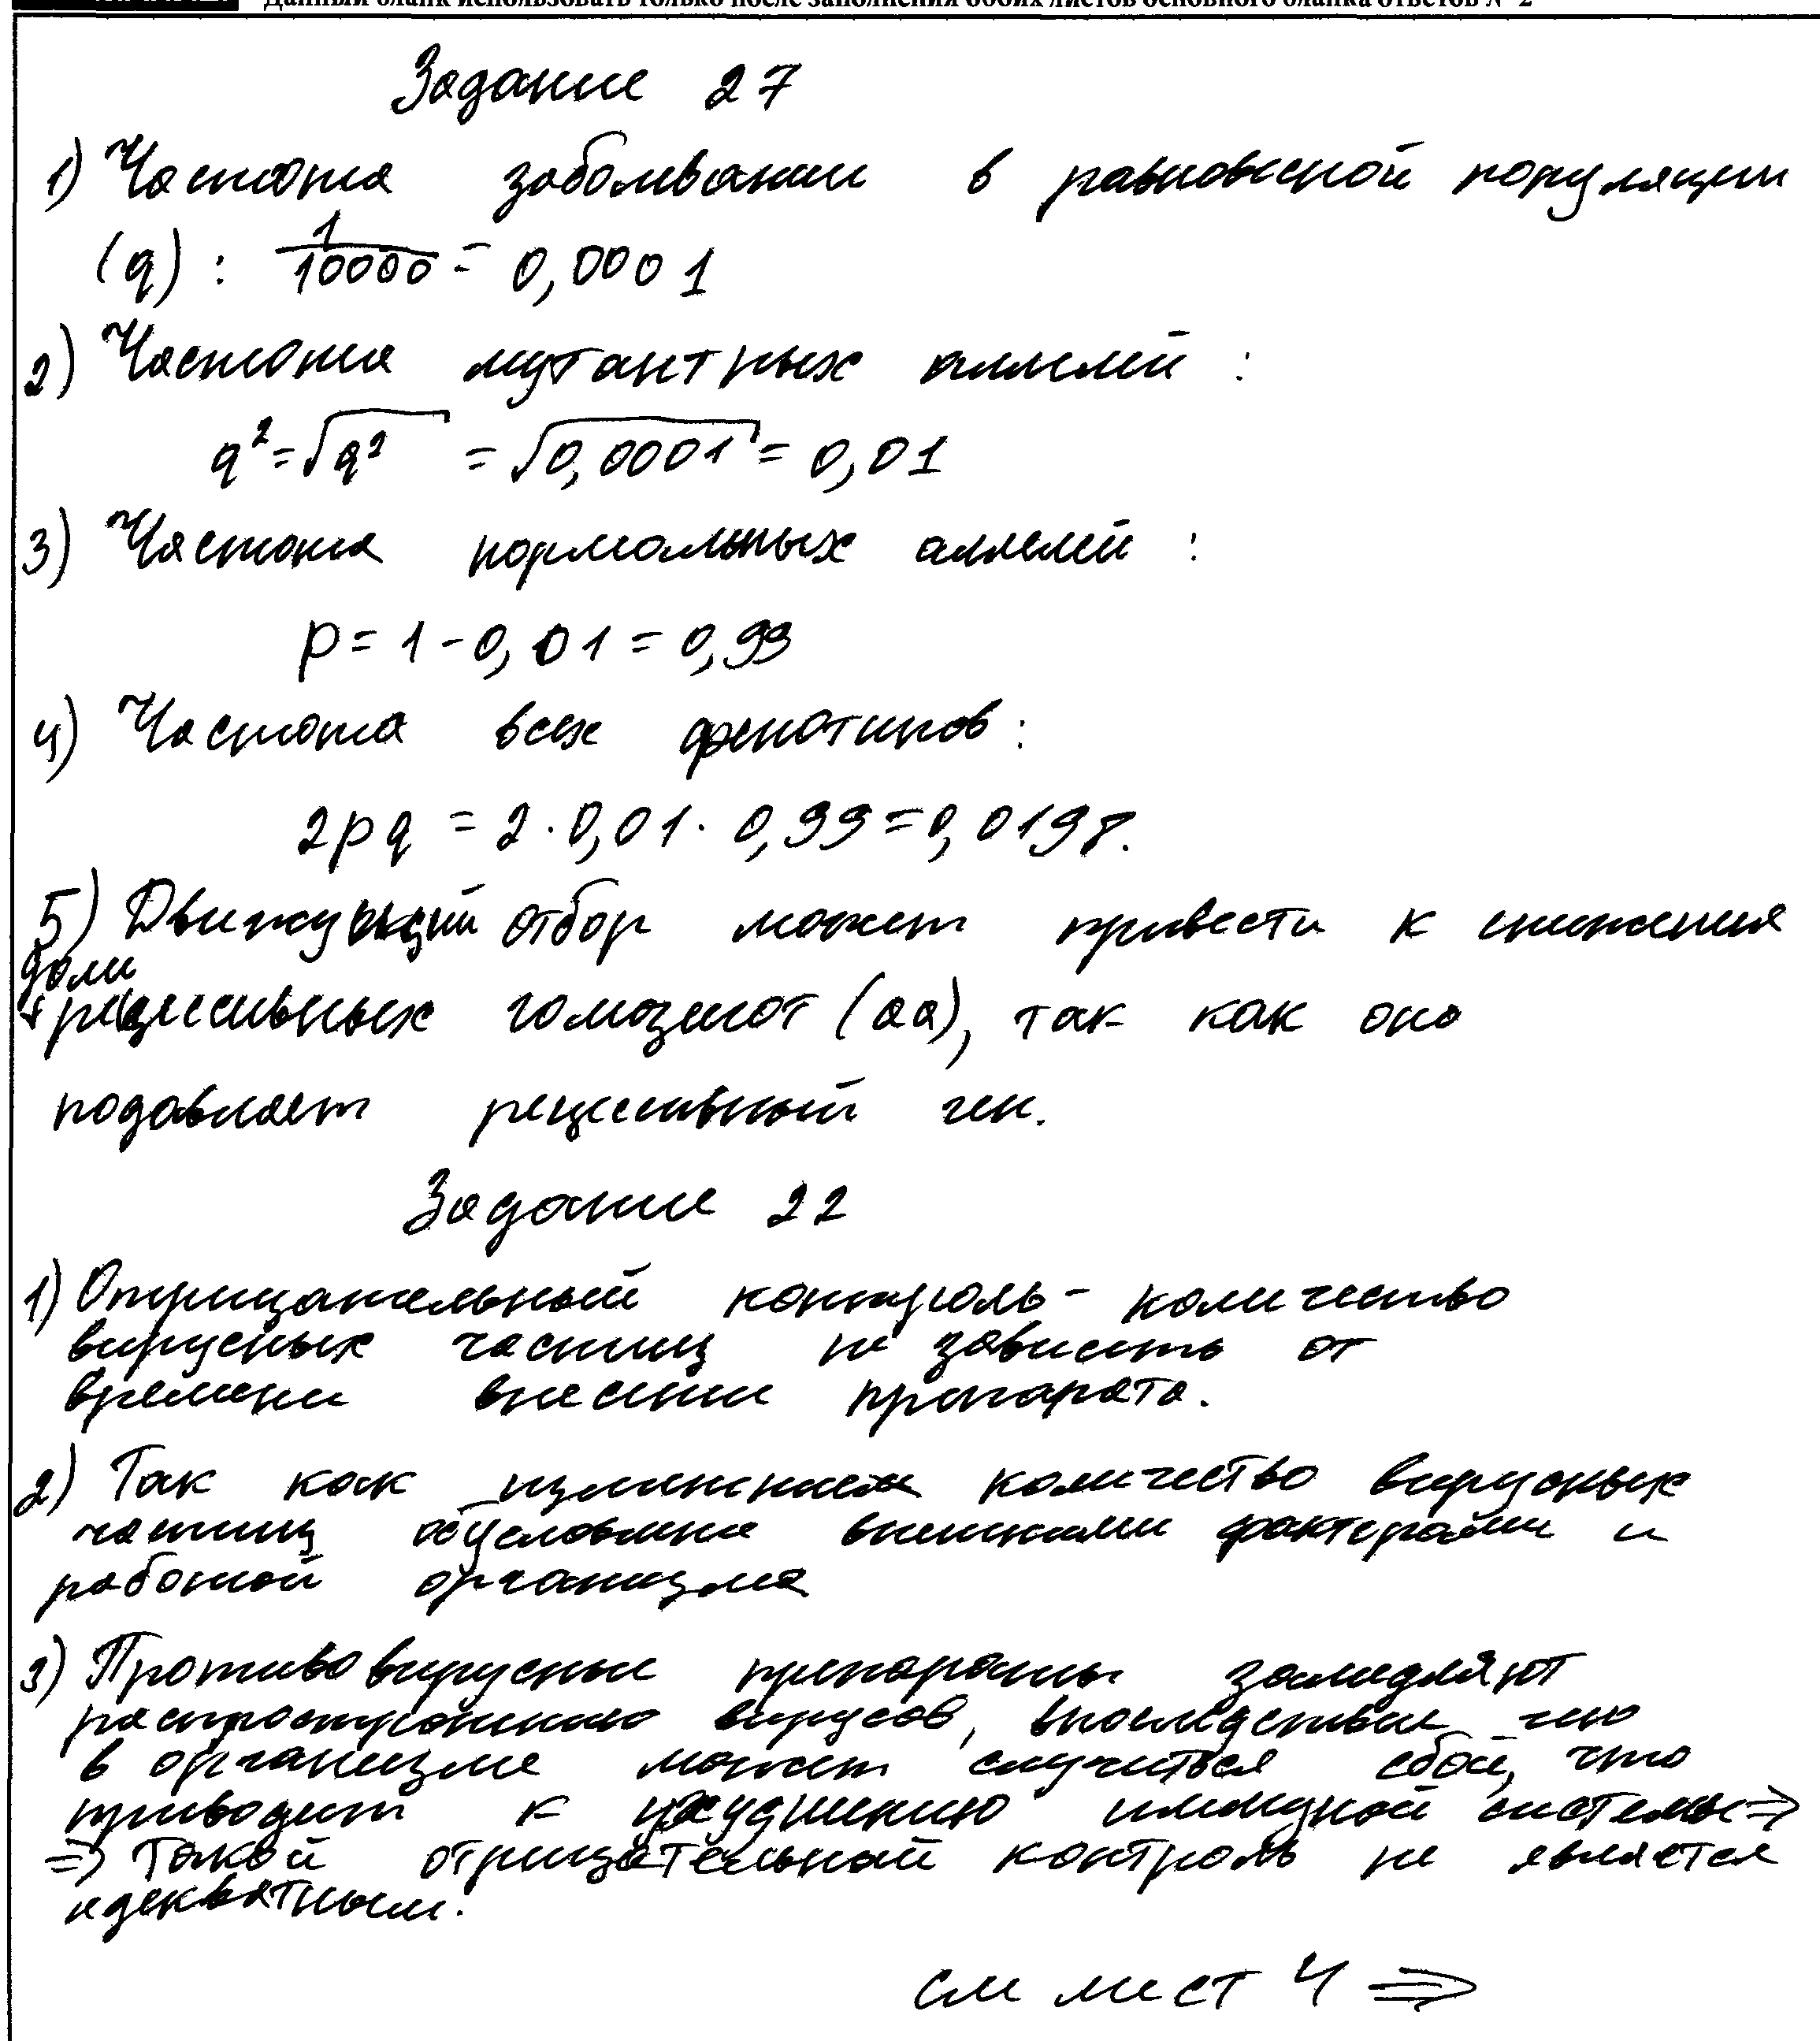 Данный бланк использовать только после заполнения обоих листов основного бланка ответов № 2
Задание 27
1) Частота заболевании в равновесной популяции
(q) : 1/10000 = 0,0001
2) Частота мутантных аллелей :
q² = √q² = √0,0001 = 0,01
3) Частота нормальных аллелей :
p = 1 - 0,01 = 0,99
4) Частота всех фенотипов :
2pq = 2 · 0,01 · 0,99 = 0,0198.
5) Движущий отбор может привести к снижения
доли
рецессивных гомозигот (аа), так как оно
подавляет рецессивный ген.
Задание 22
1) Отрицательный контроль - количество
вирусных частиц не зависеть от
времени внесении препарата.
2) Так как изменением количество вирусных
частиц обусловлено внешними факторами и
работой организма
3) Противовирусные препараты замедляют
распространению вирусов, впоследствие что
в организме может случиться сбой, что
приводит к ухудшению иммунной системы =>
=> Такой отрицательный контроль не является
адекватным.
см лист 4 =>